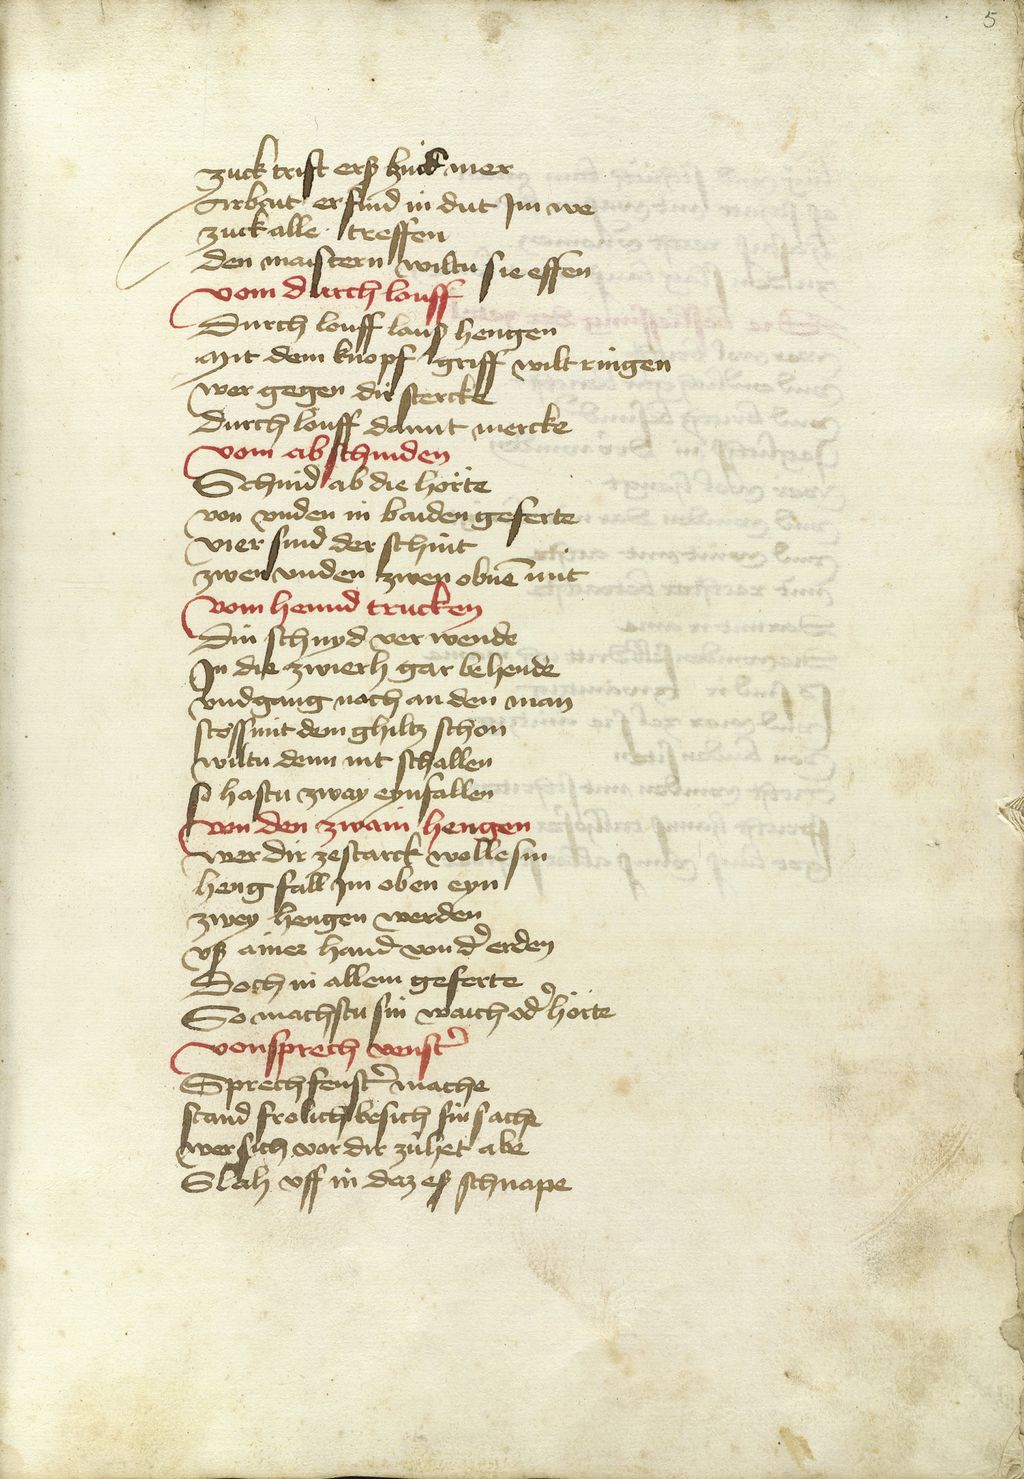 5
zuck trift erß zuck mer
Arbait er find in dut Im we
zuck alle treffen
den maistern wiltu sie effen
vom durch louff
Durch louff lauß hengen
Mit dem knopf griff wilt ringen
wer gegen dir stercke
durch louff damit mercke
vom ab schniden
Schnid ab die hörte
von vnden in baiden geferte
vier sind der schnit
zwen vnden zwen obnē mit
vom hennd trucken
Din schnyd ver wende
In die zwierh gar behende
vnd gang nach an den man
stoss mit dem ghiltz schon
wiltu denn nit schallen
so hastu zway eynfallen
von den zwain hengen
wer dir zestarck wolle sin
heng fall Im oben eyn
zwey hengen werden
vß ainer hand von d' erden
Doch in allem geferte
So machstu sin waich od' hörte
von sprech venst'
Sprech fenst' mache
stand frolich besich sin sache
wer sich vor dir zühet abe
Slah vff in daz eß schnape